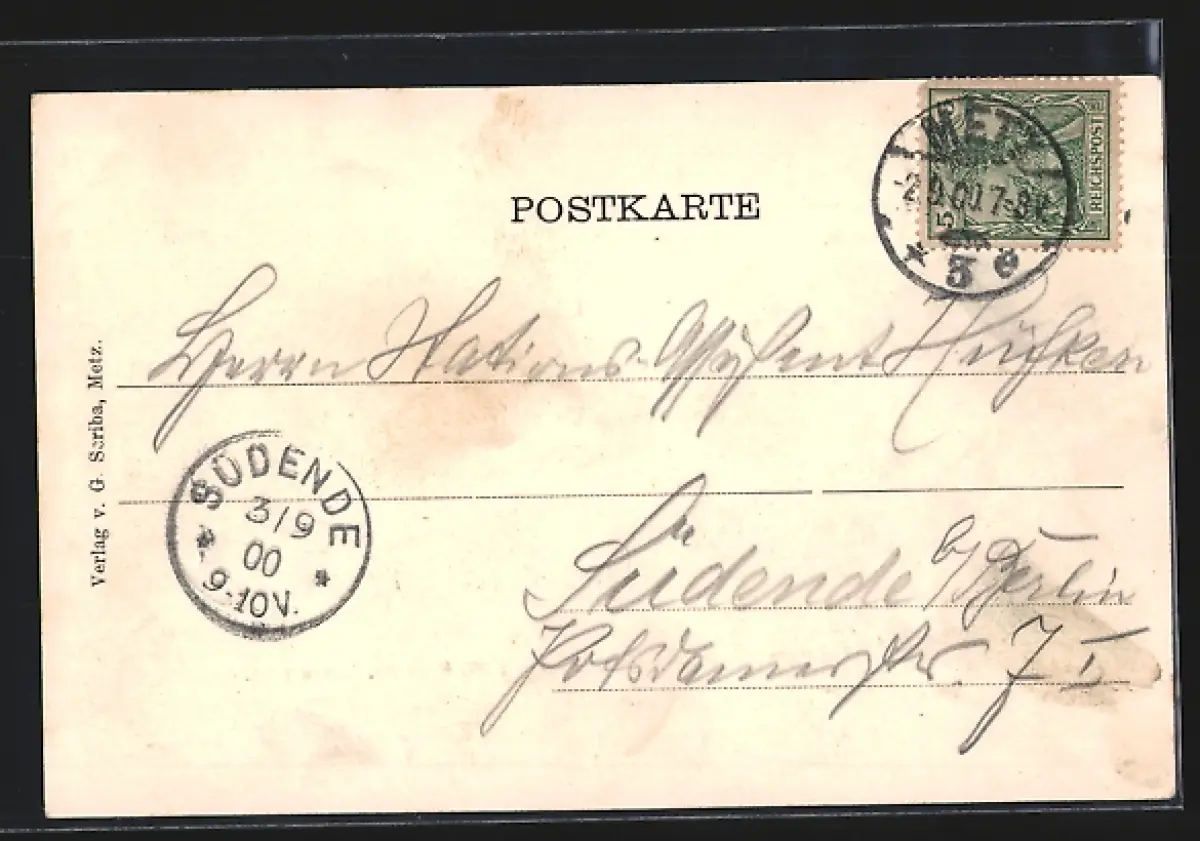 POSTKARTE
METZ
2.9.00.7-8V
* 5 e
REICHSPOST
5
Herrn Stations-Assistent
Südende b/Berlin
Potsdamerstr. 7 I
SÜDENDE
3/9
00
9-10V.
Verlag v. G. Scriba, Metz.